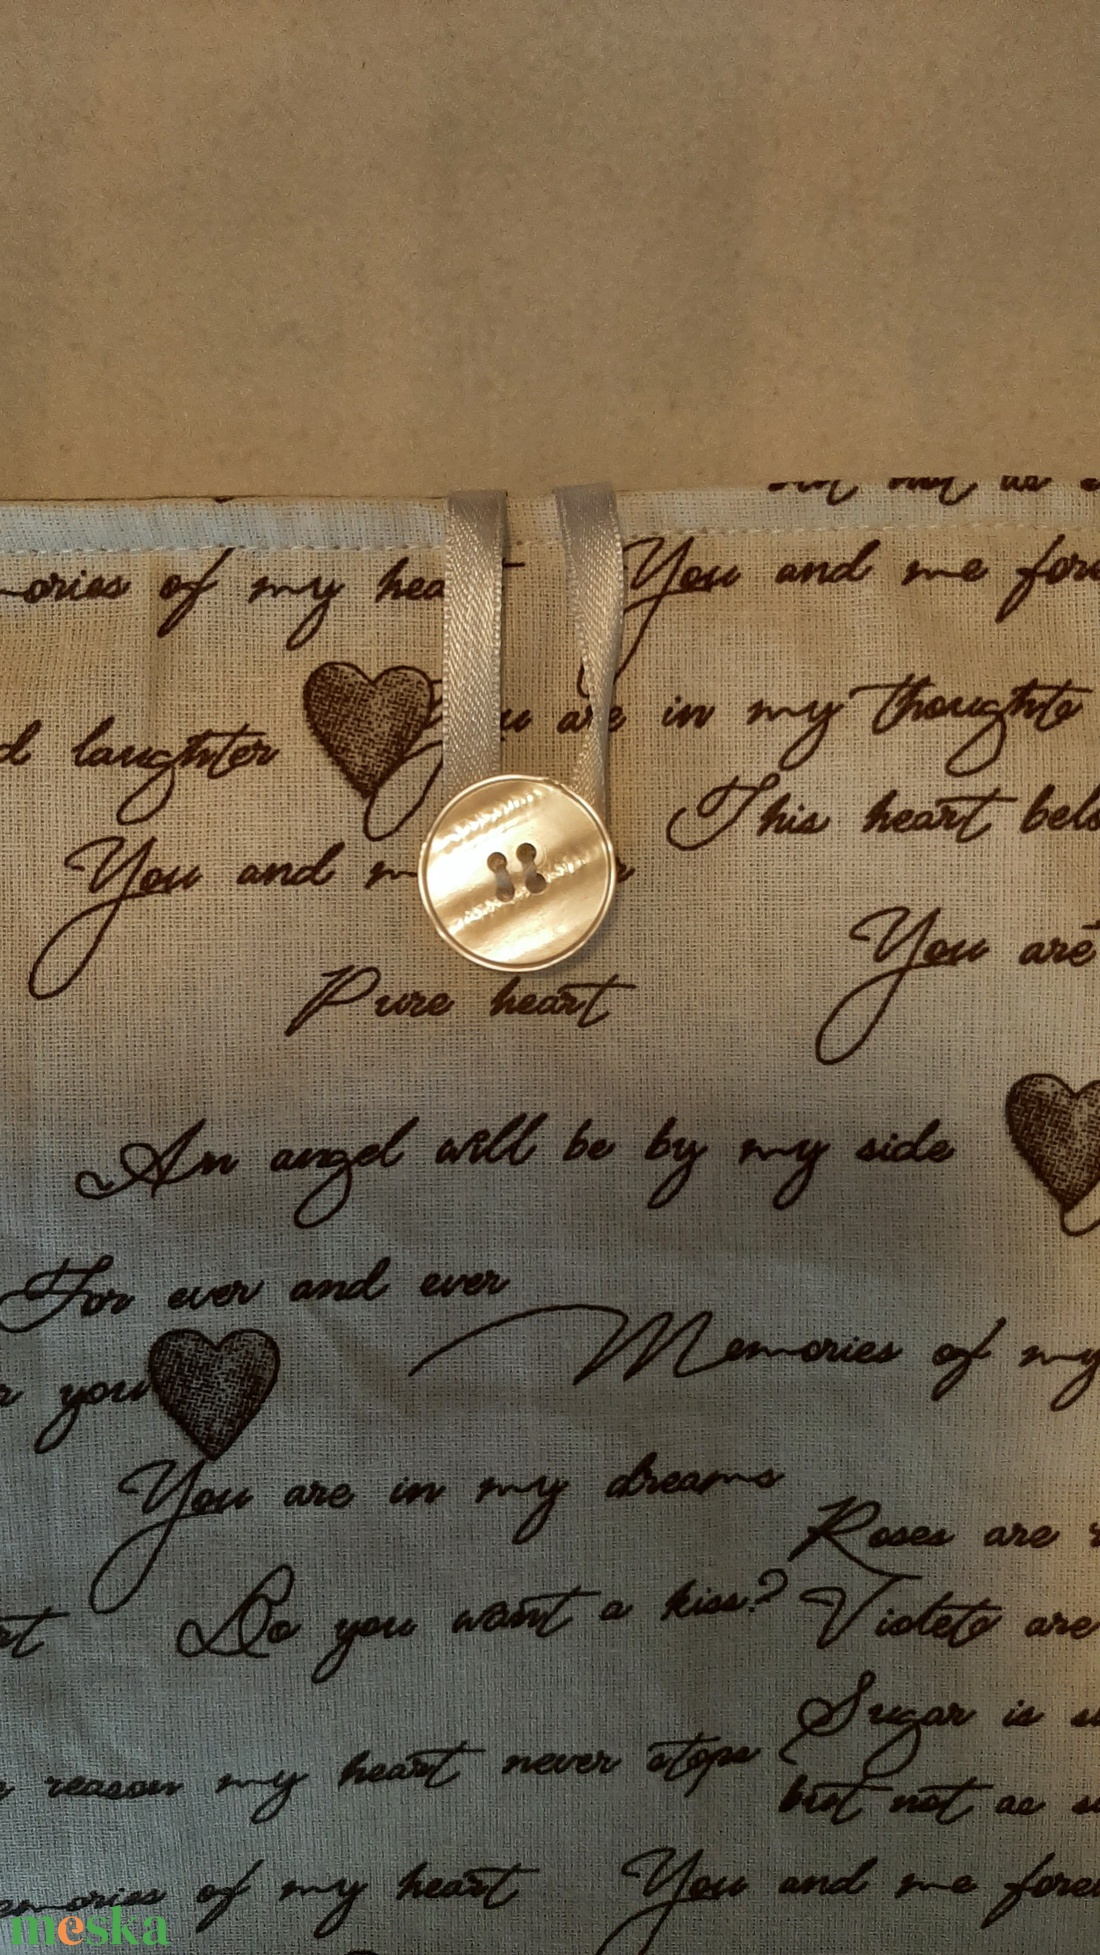 but not as
ories of my hea
You and me fore
are in my thoughts
d laughter
This heart belo
You and m
You are
Pure heart
An angel will be by my side
For ever and ever
Memories of my
you
You are in my dreams
Roses are
Do you want a kiss?
Violets are
Sugar is s
reason my heart never stops
but not as s
emories of my heart
You and me forev
meska